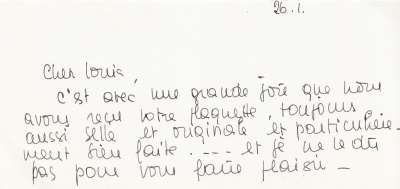 26.1.
Cher Louis,
c'est avec une grande joie que nous
avons reçu votre plaquette, toujours
aussi belle et originale et particuliè-
ment bien faite .... et je ne le dis
pas pour vous faire plaisir -